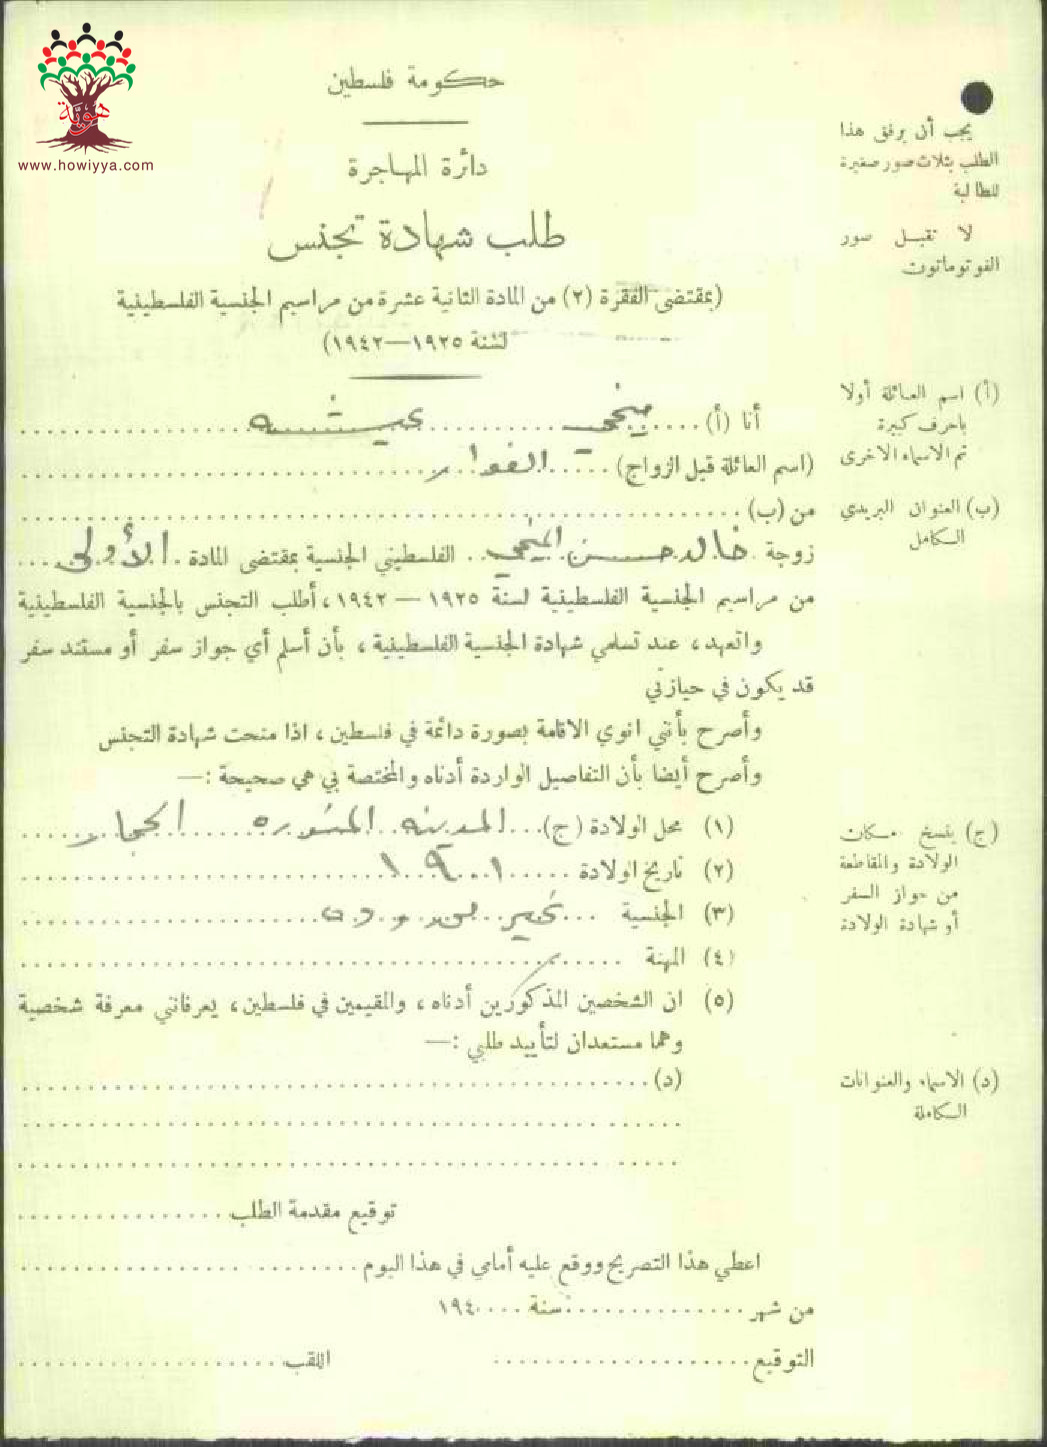 هويّة
www.howiyya.com
حكومة فلسطين
دائرة المهاجرة
طلب شهادة تجنس
(بمقتضى الفقرة (٢) من المادة الثانية عشرة من مراسيم الجنسية الفلسطينية
لسنة ١٩٢٥—١٩٤٢)
يجب أن يرفق هذا
الطلب بثلاث صور صغيرة
للطالبة
لا تقبل صور
الفوتوماتون
أنا (أ) عيشه
(اسم العائلة قبل الزواج)
من (ب)
زوجة خالد حسن الفلسطيني الجنسية بمقتضى المادة الأولى
من مراسيم الجنسية الفلسطينية لسنة ١٩٢٥ — ١٩٤٢، أطلب التجنس بالجنسية الفلسطينية
واتعهد، عند تسلمي شهادة الجنسية الفلسطينية، بأن أسلم أي جواز سفر أو مستند سفر
قد يكون في حيازتي
وأصرح بأنني انوي الاقامة بصورة دائمة في فلسطين، اذا منحت شهادة التجنس
وأصرح أيضا بأن التفاصيل الواردة أدناه والمختصة بي هي صحيحة :—
(١) محل الولادة (ج) المدينه المنوره الحجاز
(٢) تاريخ الولادة ١٩٠١
(٣) الجنسية غير
(٤) المهنة
(٥) ان الشخصين المذكورين أدناه، والمقيمين في فلسطين، يعرفانني معرفة شخصية
وهما مستعدان لتأييد طلبي :—
(د)
توقيع مقدمة الطلب
اعطي هذا التصريح ووقع عليه أمامي في هذا اليوم
من شهر سنة ١٩٤
التوقيع اللقب
(أ) اسم العائلة أولا
باحرف كبيرة
ثم الاسماء الاخرى
(ب) العنوان البريدي
الكامل
(ج) ينسخ مكان
الولادة والمقاطعة
من جواز السفر
أو شهادة الولادة
(د) الاسماء والعنوانات
الكاملة